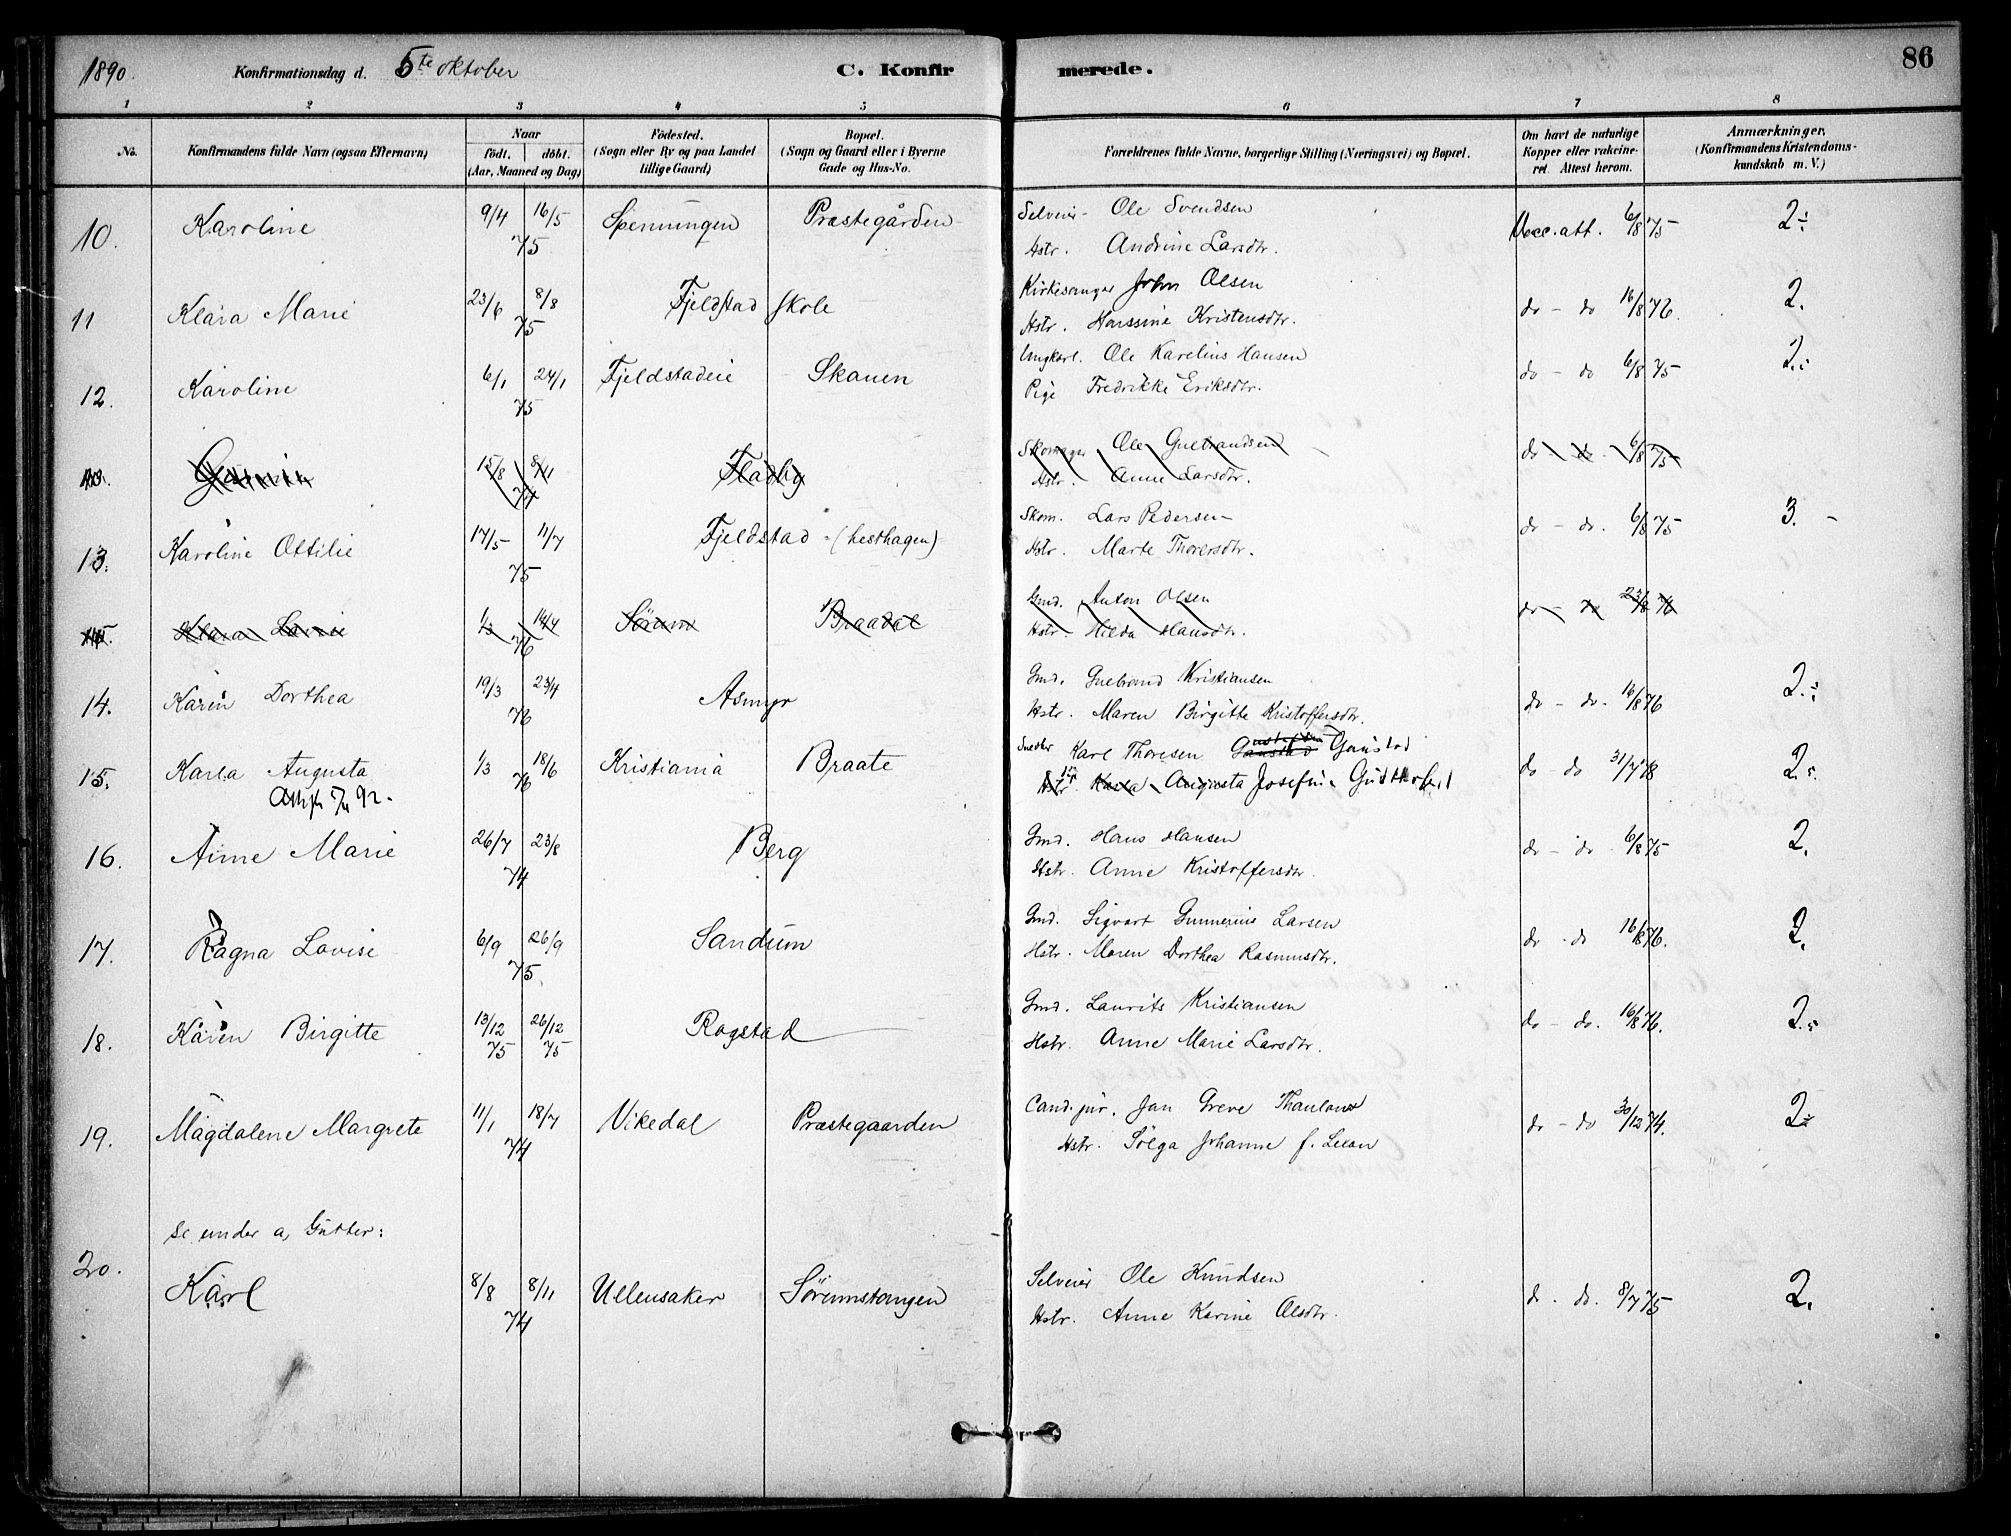 1890. Konfirmationsdag d. 5te oktober C. Konfirmerede. 86
1 2 3 4 5 6 7 8
No. Konfirmandens fulde Navn (ogsaa Efternavn) Naar födt. döbt. (Aar, Maaned og Dag) Födested. (Sogn eller By og paa Landet lillige Gaard) Bopæl. (Sogn og Gaard eller i Byerne Gade og Hus-No. Forældrenes fulde Navne, borgerlige Stilling (Næringsvei) og Bopæl. Om havt de naturlige Kopper eller vakcineret. Attest herom. Anmærkninger, (Konfirmandens Kristendomskundskab m. V.)
10. Karoline 9/4 16/5 75 Spenningen Præstegården Selveier Ole Svendsen Vacc. att. 6/8 75 2
Hstr. Andrine Larsdtr.
11 Klara Marie 23/6 8/8 75 Fjeldstad skole Kirkesanger John Olsen do - do 16/8 76. 2.
Hstr. Hanssine Kristensdtr.
12. Karoline 6/1 24/1 75 Fjeldstadeie Skauen Ungkarl. Ole Karelius Hansen do - do 6/8 75 2.
Pige Fredrikke Eriksdtr.
15/8 8/11 74 Fladby Skomager Ole Gulbrandsen do do. 6/8 75
Hstr. Anne Larsdtr.
13. Karoline Ottilie 17/5 11/7 75 Fjeldstad - (hesthagen) Skom. Lars Pedersen do - do. 6/8 75 3. -
Hstr. Marte Thoresdtr.
Klara Lovise 1/3 14/4 76 Sörum Braadal Gmd. Anton Olsen do - do 23/8 76
Hstr. Hilda Hansdtr.
14. Karen Dorthea 19/3 23/4 76 Asmyr Gmd. Gulbrand Kristiansen do - do. 16/8 76 2.
Hstr. Maren Birgitte Kristoffersdtr.
15. Karla Augusta 1/3 18/6 76 Kristiania Braate Snedker Karl Thoresen Gaustad do - do 31/7 78 2.
92. Karla Augusta Josefine
16. Anne Marie 26/7 23/8 74 Berg Gmd. Hans Hansen do - do 6/8 75 2.
Hstr. Anne Kristoffersdtr.
17. Ragna Lovise 6/9 26/9 75. Sandum Gmd. Sigvart Gunnerius Larsen do. do 16/8 76. 2.
Hstr. Maren Dorthea Rasmusdtr.
18. Karen Birgitte 13/12 75 26/12 75 Rogstad Gmd. Laurits Kristiansen do - do. 16/8 76. 2.
Hstr. Anne Marie Larsdtr.
19. Magdalene Margrete 11/1 18/7 74 Vikedal Præstegaarden Cand. jur. Jan Greve Thaulow do - do 30/12 74. 2
Hstr. Sölga Johanne f.
se under a, Gutter:
20. Karl 8/8 8/11 74 Ullensaker Sörumstangen Selveier Ole Knudsen d. do. 8/7 75 2.
Hstr. Anne Karine Olsdtr.